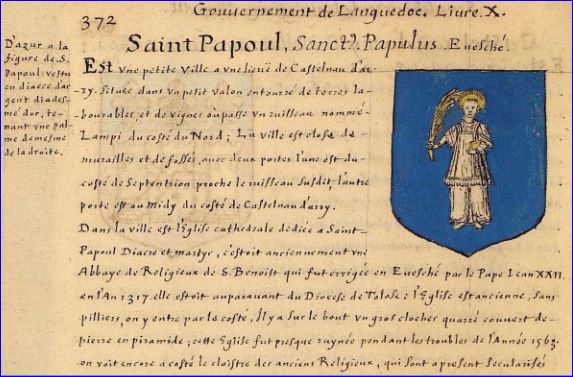 Gouvernement de Languedoc. Liure. X.
372
Saint Papoul, Sanctꝰ. Papulus Euesché
D'azur a la
figure de S.
Papoul vestu
en diacre d'ar
gent diades-
mé d'or, te-
nant vne pal
me de mesme
de la droite.
Est vne petite ville a vne lieuë de Castelnau d'ar-
ry. Située dans vn petit valon entouré de terres la-
bourables, et de vignes où passe vn ruisseau nommé
Lampi du costé du Nord; La ville est close de
murailles et de fossés, auec deux portes l'une est du
costé de Septentrion proche le ruisseau susdit, l'autre
porte est au Midy du costé de Castelnau d'arry.
Dans la ville est l'Eglise cathedrale dediée a Saint-
Papoul Diacre et martyr, c'estoit anciennement vne
Abbaye de Religieux de S. Benoist qui fut errigée en Euesché par le Pape Iean XXII.
en l'An 1317. elle estoit auparauant du Diocese de Tolose; l'Eglise est ancienne, sans
pilliers, on y entre par le costé, Il y a sur le bout vn gros clocher quarré couuert de
pierre en piramide; cette Eglise fut presque ruynée pendant les troubles de l'Année 1563.
on voit encore a costé le cloistre des anciens Religieux, qui sont a present secularisés